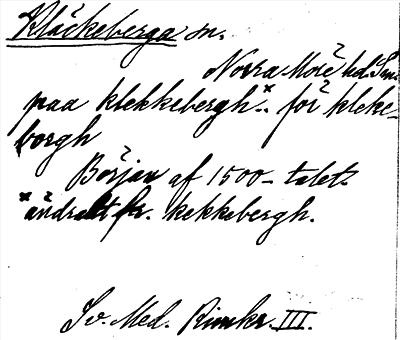 Kläckeberga sn.
Norra Möre hd. Sm.
paa klekkebergh.x för kleke-
borgh
Början af 1500-talet.
x ändradt fr. kekkebergh.
Sv. Med. Rimkr. III.